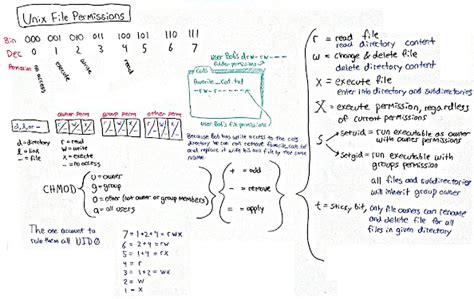 Unix File Permissions
Bin 000 001 010 011 100 101 110 111
Dec 0 1 2 3 4 5 6 7
no access
execute
write
read
User Bob's drw-rw----
folder permissions
Cats
favorite_cat.txt
--r--------
User Bob's file permissions
owner perm group perm other perm
d, l, or -
r w x r w x r w x
d = directory
l = link
- = file
r = read
w = write
x = execute
- = no access
Because Bob has write access to the cats
directory he can remove favorite_cat.txt
and replace it with his own file by the same
name
CHMOD
u = owner
g = group
o = other (not owner or group members)
a = all users
+ = add
- = remove
= = apply
r = read file
read directory content
w = change & delete file
delete directory content
x = execute file
enter into directory and subdirectories
X = execute permission, regardless
of current permissions
S
setuid = run executable as owner
with owner permissions
setgid = run executable with
groups permission
all files and subdirectories
will inherit group owner
t = sticky bit, only file owners can rename
and delete file for all
files in given directory
The one account to
rule them all UID0
7 = 1+2+4 = rwx
6 = 2+4 = rw
5 = 1+4 = rx
4 = r
3 = 1+2 = wx
2 = w
1 = x